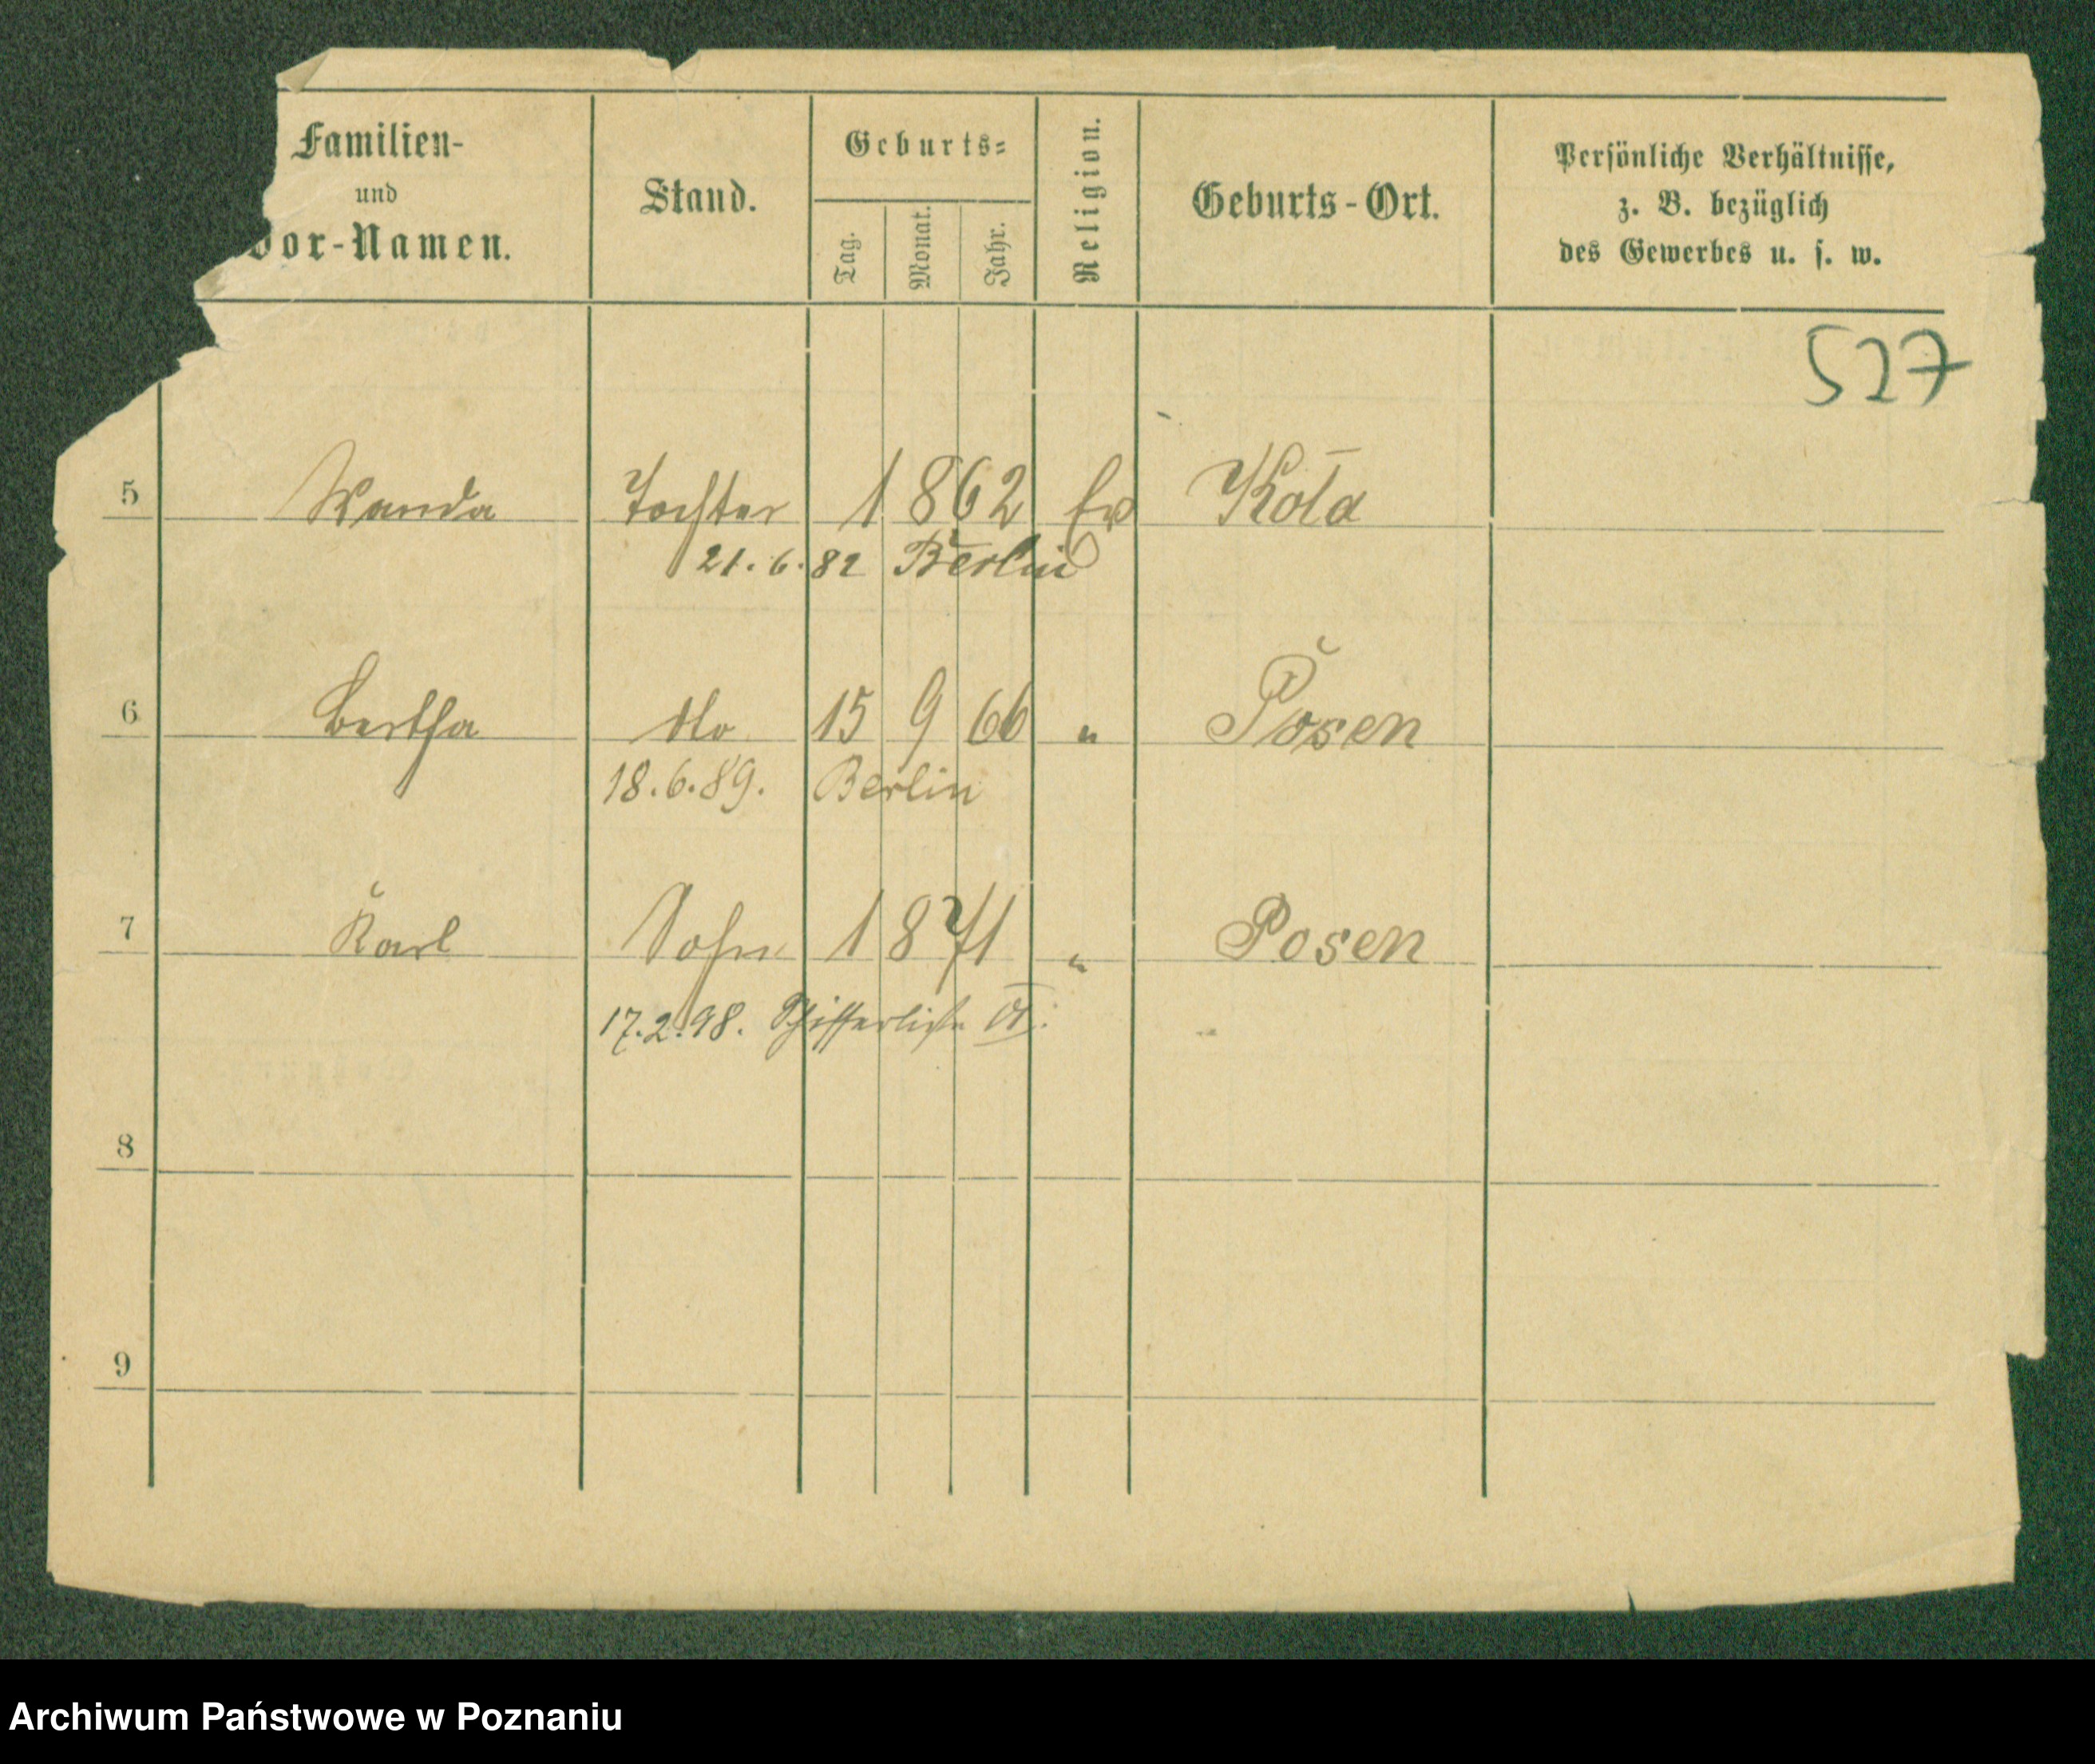 Familien- und Vor-Namen.
Stand.
Geburts-
Tag. Monat. Jahr.
Religion.
Geburts-Ort.
Persönliche Verhältnisse,
z. B. bezüglich
des Gewerbes u. s. w.
527
5 Wanda Tochter 1862 Ev Kola
21.6.82 Berlin
6 Bertha dto 15 9 66 " Posen
18.6.89. Berlin
7 Karl Sohn 1871 " Posen
17.2.98.
8
9
Archiwum Państwowe w Poznaniu